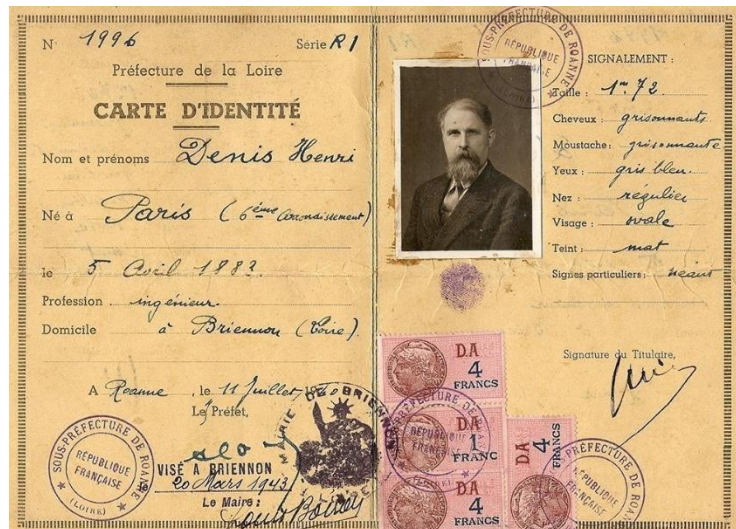 N° 1996 Série R1
Préfecture de la Loire
CARTE D'IDENTITÉ
Nom et prénoms Denis Henri
Né à Paris (6ème Arrondissement)
le 5 Avril 1883.
Profession ingénieur.
Domicile à Briennon (Loire)
A Roanne, le 11 Juillet
Le Préfet,
SOUS-PRÉFECTURE DE ROANNE
RÉPUBLIQUE FRANÇAISE
(LOIRE)
VISÉ A BRIENNON
le 20 Mars 1943
Le Maire :
MAIRIE DE BRIENNON
SOUS-PRÉFECTURE DE ROANNE
RÉPUBLIQUE FRANÇAISE
(LOIRE)
SIGNALEMENT :
Taille : 1m. 72.
Cheveux : grisonnants
Moustache : grisonnante
Yeux : gris bleu.
Nez : régulier
Visage : ovale
Teint : mat
Signes particuliers : néant
Signature du Titulaire,
DA
4
FRANCS
DA
1
FRANC
DA
4
FRANCS
DA
4
FRANCS
PRÉFECTURE DE ROANNE
RÉPUBLIQUE
(LOIRE)
PRÉFECTURE DE ROANNE
RÉPUBLIQUE
FRANÇAISE